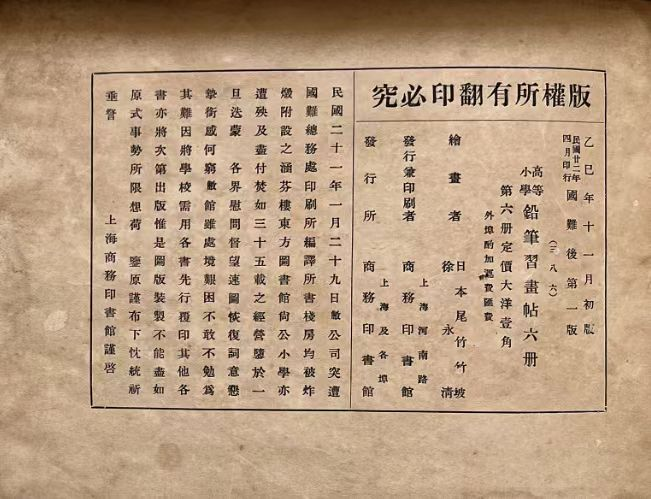 版權所有翻印必究
乙巳年十一月初版
民國廿二年
四月印行
國難後第一版
高等
小學
鉛筆習畫帖六册
(三八六)
第六册定價大洋壹角
外埠酌加運費匯費
繪畫者
日本尾竹竹坡
徐永清
發行兼印刷者
上海河南路
商務印書館
發行所
上海及各埠
商務印書館
民國二十一年一月二十九日敝公司突遭
國難總務處印刷所編譯所書棧房均被炸
燬附設之涵芬樓東方圖書館尙公小學亦
遭殃及盡付焚如三十五載之經營隳於一
旦迭蒙 各界慰問督望速圖恢復詞意懇
摯銜感何窮敝館雖處境艱困不敢不勉爲
其難因將學校需用各書先行覆印其他各
書亦將次第出版惟是圖版裝製不能盡如
原式事勢所限想荷 鑒原謹布下忱統祈
垂詧 上海商務印書館謹啓